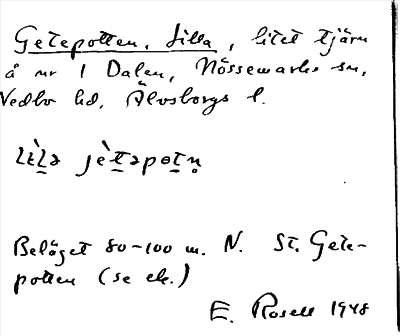 Getepotten, Lilla, litet tjärn
å nr 1 Dalen, Nössemarks sn,
Vedbo hd, Älvsborgs l.
lìla jètapotn̥
Beläget 80-100 m. N. St. Gete-
potten (se ek.)
E. Rosell 1948